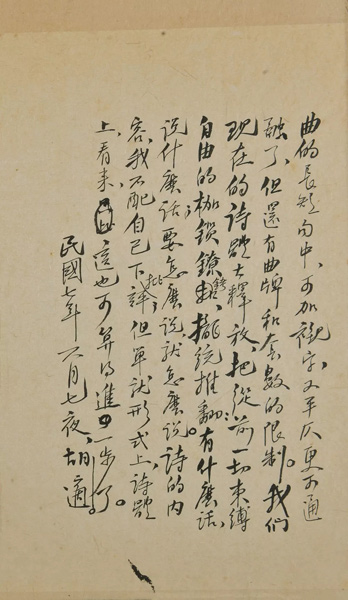 曲的長短句中,可加襯字,又平仄更可通
融了,但還有曲牌和套數的限制。我們
現在的詩體大釋放,把從前一切束縛
自由的枷鎖鐐銬,攏統推翻:有什麼話,
说什麼話;要怎麼說就怎麼說。詩的內
容,我不配自己下批評,但單就形式上詩體
上看来,這也可算得進一步了。
民國七年六月七夜,胡適。